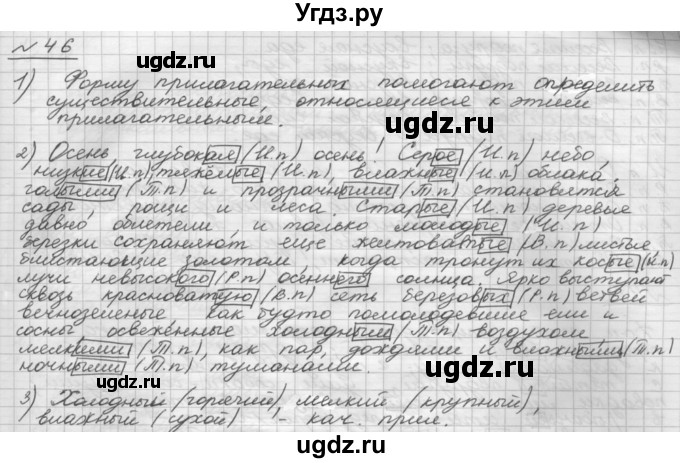 Угдз.ру
№ 46
ugdz.ru
1) Форму прилагательных помогают определить
существительные, относящиеся к этим
прилагательным.
ugdz.ru
2) Осень глубокая (И.п) осень! Серое (И.п) небо,
низкие (И.п), тяжёлые (И.п), влажные (И.п) облака,
голыми (Т.п) и прозрачными (Т.п) становятся
сады, рощи и леса. Старые (И.п) деревья
давно облетели, и только молодые (И.п)
ugdz.ru
березки сохраняют еще желтоватые (В.п) листья
блистающие золотом, когда тронут их косые (И.п)
лучи невысокого (Р.п) осеннего солнца. Ярко выступают
сквозь красноватую (В.п) сеть березовых (Р.п) ветвей
вечнозеленые как будто помолодевшие ели и
сосны освеженные холодным (Т.п) воздухом
мелкими (Т.п), как пар, дождями и влажными (Т.п)
ночными (Т.п) туманами.
ugdz.ru
3) Холодный (горячий), мелкий (крупный),
влажный (сухой) - кач. прил.
ugdz.ru